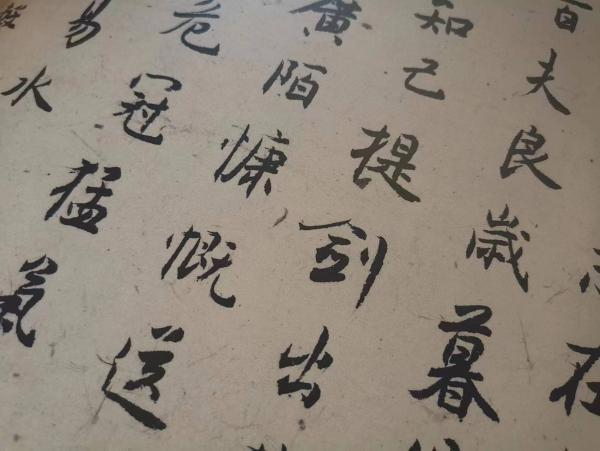 在
百夫良歲暮
知己提劍出
廣陌慷慨送
危冠猛氣
易水